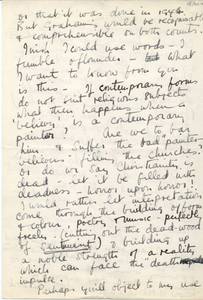 or that it was done in 1946
But Graham's would be recognisable
& comprehensible on both counts.
I wish I could use words - I
fumble & flounder - but what
I want to know from you
is this - If contemporary forms
do not suit religious subject
what then happens when a
believer, is a contemporary
painter? Are we to bar
him & suffer the bad painter
believer filling the churches
or do we say Christianity is
dead - let it be filled with
deadness - horror upon horror!
I would rather let interpretation
come through the building of form
& colour. Doctor & music - perfectly
freely (cutting out the dead wood
of sentiment) & building up
a noble strength of a reality
which can face the death
impulse.
Perhaps you'll object to my use